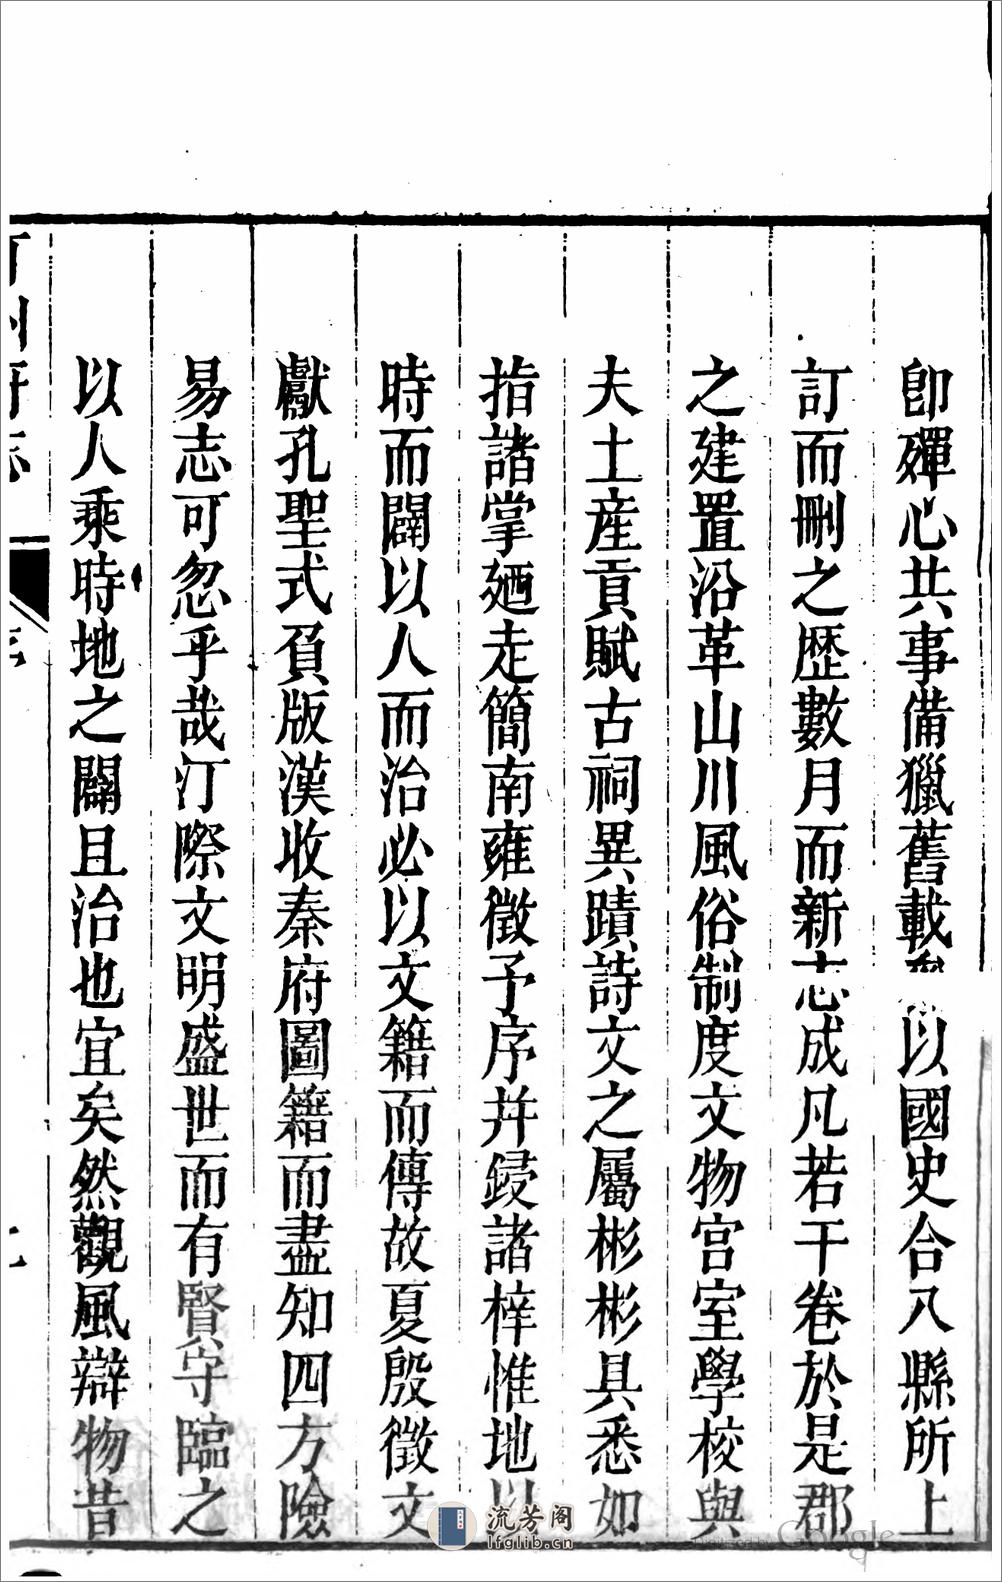 卽殫心共事備獵舊載參以國史合八縣所上
訂而刪之歷數月而新志成凡若干卷於是郡
之建置沿革山川風俗制度文物宮室學校與
夫土產貢賦古祠異蹟詩文之屬彬彬具悉如
指諸掌廼走簡南雍徵予序幷鋟諸梓惟地以
時而闢以人而治必以文籍而傳故夏殷徵文
獻孔聖式負版漢收秦府圖籍而盡知四方險
易志可忽乎哉汀際文明盛世而有賢守臨之
以人乘時地之闢且治也宜矣然觀風辯物昔
汀州府志
流芳阁
lfglib.cn
Digitized by Google